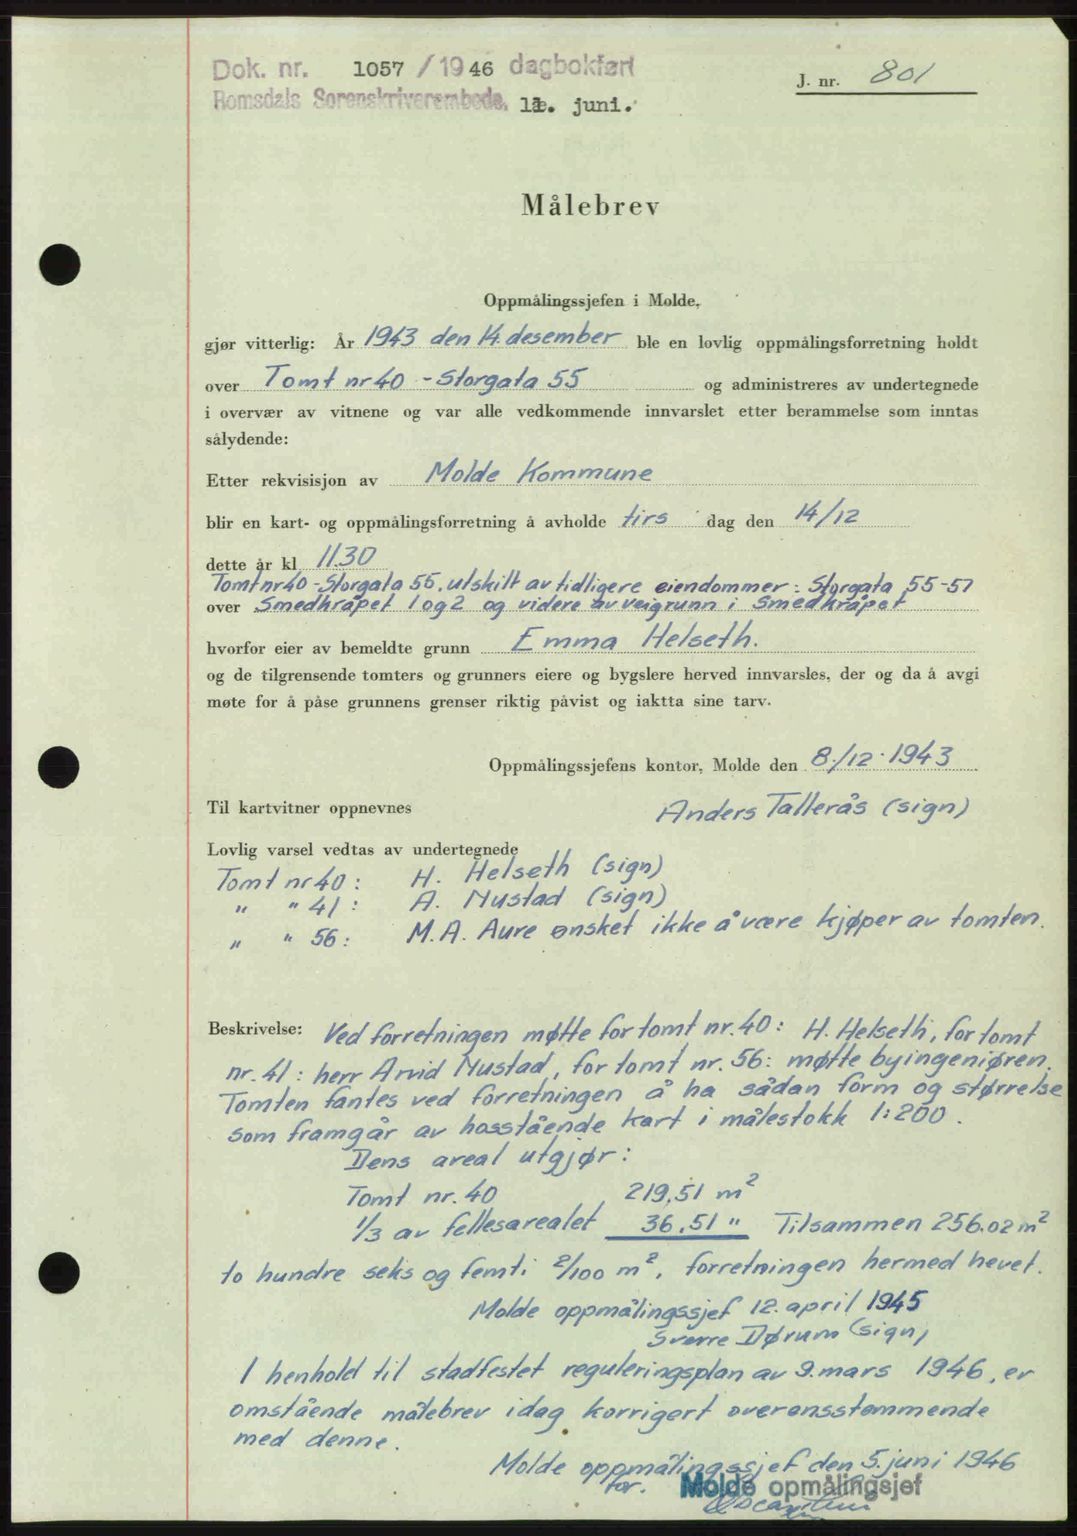 Dok. nr. 1057 / 1946 dagbokført
Romsdals Sorenskriverembede, 11. juni.
J. nr. 801
Målebrev
Oppmålingssjefen i Molde,
gjør vitterlig: År 1943 den 14. desember ble en lovlig oppmålingsforretning holdt
over Tomt nr 40 - Storgata 55 og administreres av undertegnede
i overvær av vitnene og var alle vedkommende innvarslet etter berammelse som inntas
sålydende:
Etter rekvisisjon av Molde Kommune
blir en kart- og oppmålingsforretning å avholde tirs dag den 14/12
dette år kl. 11.30
Tomt nr 40 - Storgata 55, utskilt av tidligere eiendommer: Storgata 55-57
over Smedkråpet 1 og 2 og videre av veigrunn i Smedkråpet
hvorfor eier av bemeldte grunn Emma Helseth.
og de tilgrensende tomters og grunners eiere og bygslere herved innvarsles, der og da å avgi
møte for å påse grunnens grenser riktig påvist og iaktta sine tarv.
Oppmålingssjefens kontor, Molde den 8/12 1943
Til kartvitner oppnevnes
Anders Tallerås (sign)
Lovlig varsel vedtas av undertegnede
Tomt nr 40: H. Helseth (sign)
" " 41: A. Nustad (sign)
" " 56: M.A. Aure ønsket ikke å være kjøper av tomten.
Beskrivelse: Ved forretningen møtte for tomt nr. 40: H. Helseth, for tomt
nr. 41: herr Arvid Nustad, for tomt nr. 56: møtte byingeniøren.
Tomten fantes ved forretningen å ha sådan form og størrelse
som framgår av hosstående kart i målestokk 1:200.
Dens areal utgjør:
Tomt nr. 40 219,51 m²
1/3 av fellesarealet 36,51 " Tilsammen 256.02 m²
to hundre seks og femti 2/100 m², forretningen hermed hevet.
Molde oppmålingssjef 12. april 1945
Sverre Dørum (sign)
I henhold til stadfestet reguleringsplan av 9. mars 1946, er
omstående målebrev idag korrigert overensstemmende
med denne.
Molde oppmålingssjef den 5. juni 1946
for. Molde opmålingsjef